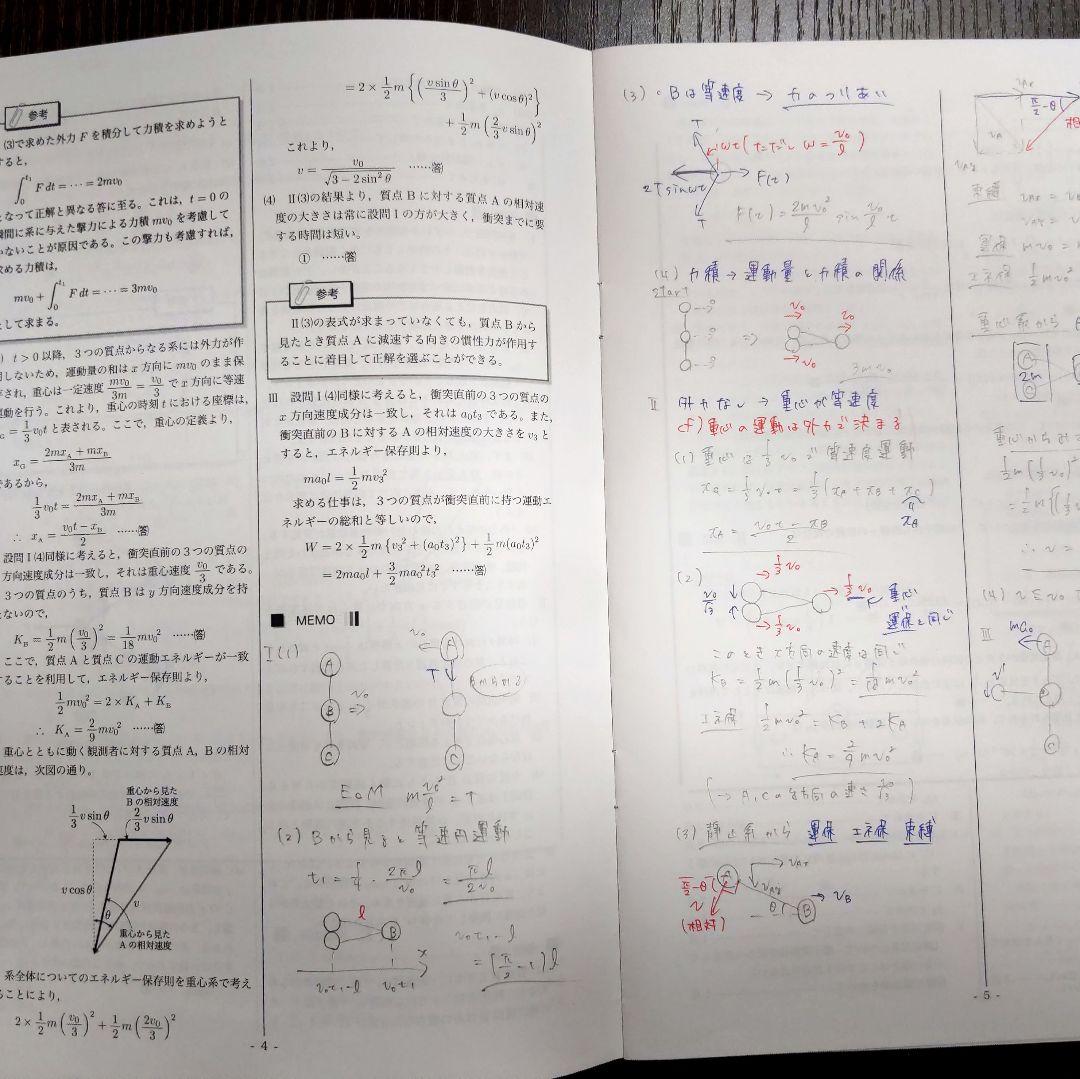 参考
(3)で求めた外力 F を積分して力積を求めようと
すると,
∫₀^{t₁} F dt = … = 2mv₀
となって正解と異なる答に至る。これは, t = 0 の
瞬間に系に与えた撃力による力積 mv₀ を考慮して
いないことが原因である。この撃力も考慮すれば,
求める力積は,
mv₀ + ∫₀^{t₁} F dt = … = 3mv₀
として求まる。
t > 0 以降, 3つの質点からなる系には外力が作
用しないため, 運動量の和は x 方向に mv₀ のまま保
存され, 重心は一定速度 mv₀/3m = v₀/3 で x 方向に等速
運動を行う。これより, 重心の時刻 t における座標は,
x_G = 1/3 v₀t と表される。ここで, 重心の定義より,
x_G = (2mx_A + mx_B)/3m
であるから,
1/3 v₀t = (2mx_A + mx_B)/3m
∴ x_A = (v₀t − x_B)/2 ……答
設問 I (4)同様に考えると, 衝突直前の3つの質点の
方向速度成分は一致し, それは重心速度 v₀/3 である。
3つの質点のうち, 質点 B は y 方向速度成分を持
たないので,
K_B = 1/2 m (v₀/3)² = 1/18 mv₀² ……答
ここで, 質点 A と質点 C の運動エネルギーが一致
することを利用して, エネルギー保存則より,
1/2 mv₀² = 2 × K_A + K_B
∴ K_A = 2/9 mv₀² ……答
重心とともに動く観測者に対する質点 A, B の相対
速度は, 次図の通り。
重心から見た
B の相対速度
1/3 v sin θ
2/3 v sin θ
v cos θ
v
θ
重心から見た
A の相対速度
系全体についてのエネルギー保存則を重心系で考え
ることにより,
2 × 1/2 m (v₀/3)² + 1/2 m (2v₀/3)²
= 2 × 1/2 m {(v sin θ/3)² + (v cos θ)²}
+ 1/2 m (2/3 v sin θ)²
これより,
v = v₀/√(3 − 2 sin² θ) ……答
(4) II(3)の結果より, 質点 B に対する質点 A の相対速
度の大きさは常に設問 I の方が大きく, 衝突までに要
する時間は短い。
① ……答
参考
II(3)の表式が求まっていなくても, 質点 B から
見たとき質点 A に減速する向きの慣性力が作用す
ることに着目して正解を選ぶことができる。
III 設問 I (4)同様に考えると, 衝突直前の3つの質点の
x 方向速度成分は一致し, それは a₀t₃ である。また,
衝突直前の B に対する A の相対速度の大きさを v₃ と
すると, エネルギー保存則より,
ma₀l = 1/2 mv₃²
求める仕事は, 3つの質点が衝突直前に持つ運動エ
ネルギーの総和と等しいので,
W = 2 × 1/2 m {v₃² + (a₀t₃)²} + 1/2 m(a₀t₃)²
= 2ma₀l + 3/2 ma₀²t₃² ……答
MEMO
I (1)
A
B
C
v₀
⇒
v₀
A
T
C
EoM m v₀²/l = T
(2) Bから見ると等速円運動
t₁ = 1/4 · 2πl/v₀ = πl/2v₀
l
B
x
v₀t₁−l
v₀t₁
v₀t₁−l
= (π/2 −1) l
- 4 -
(3) ・Bは等速度 → 力のつりあい
T
ωt (ただし ω = v₀/l)
2T sin ωt
F(t)
T
F(t) = 2mv₀²/l sin v₀/l t
(4) 力積 → 運動量と力積の関係
start
⇒
v₀
v₀
v₀
3mv₀
II 外力なし → 重心が等速度
cf) 重心の運動は外力で決まる
(1) 重心は 1/3 v₀ で等速度運動
x_G = 1/3 v₀t = 1/3 (x_A + x_B + x_C)
x_A
x_A = (v₀t − x_B)/2
(2)
1/3 v₀
v₀/√3
1/3 v₀
1/3 v₀
重心
運保と同じ
このとき x方向の速度は同じ
K_B = 1/2 m (1/3 v₀)² = 1/18 mv₀²
エネ保 1/2 mv₀² = K_B + 2K_A
∴ K_A = 2/9 mv₀²
(→ A, Cのy方向の速さ v₀/√3)
(3) 静止系から 運保 エネ保 束縛
π/2−θ
A
v_Ax
v_Ay
v
(相対)
θ
B
v_B
v_Ax
π/2−θ
v_A
v_Ay
相対
束縛
運保 mv₀ =
エネ保 1/2 mv₀²
重心系から
A
2m
重心からみて
1/2 m(1/3 v₀)²
∴ v =
III
ma₀
A
v
B
C
- 5 -